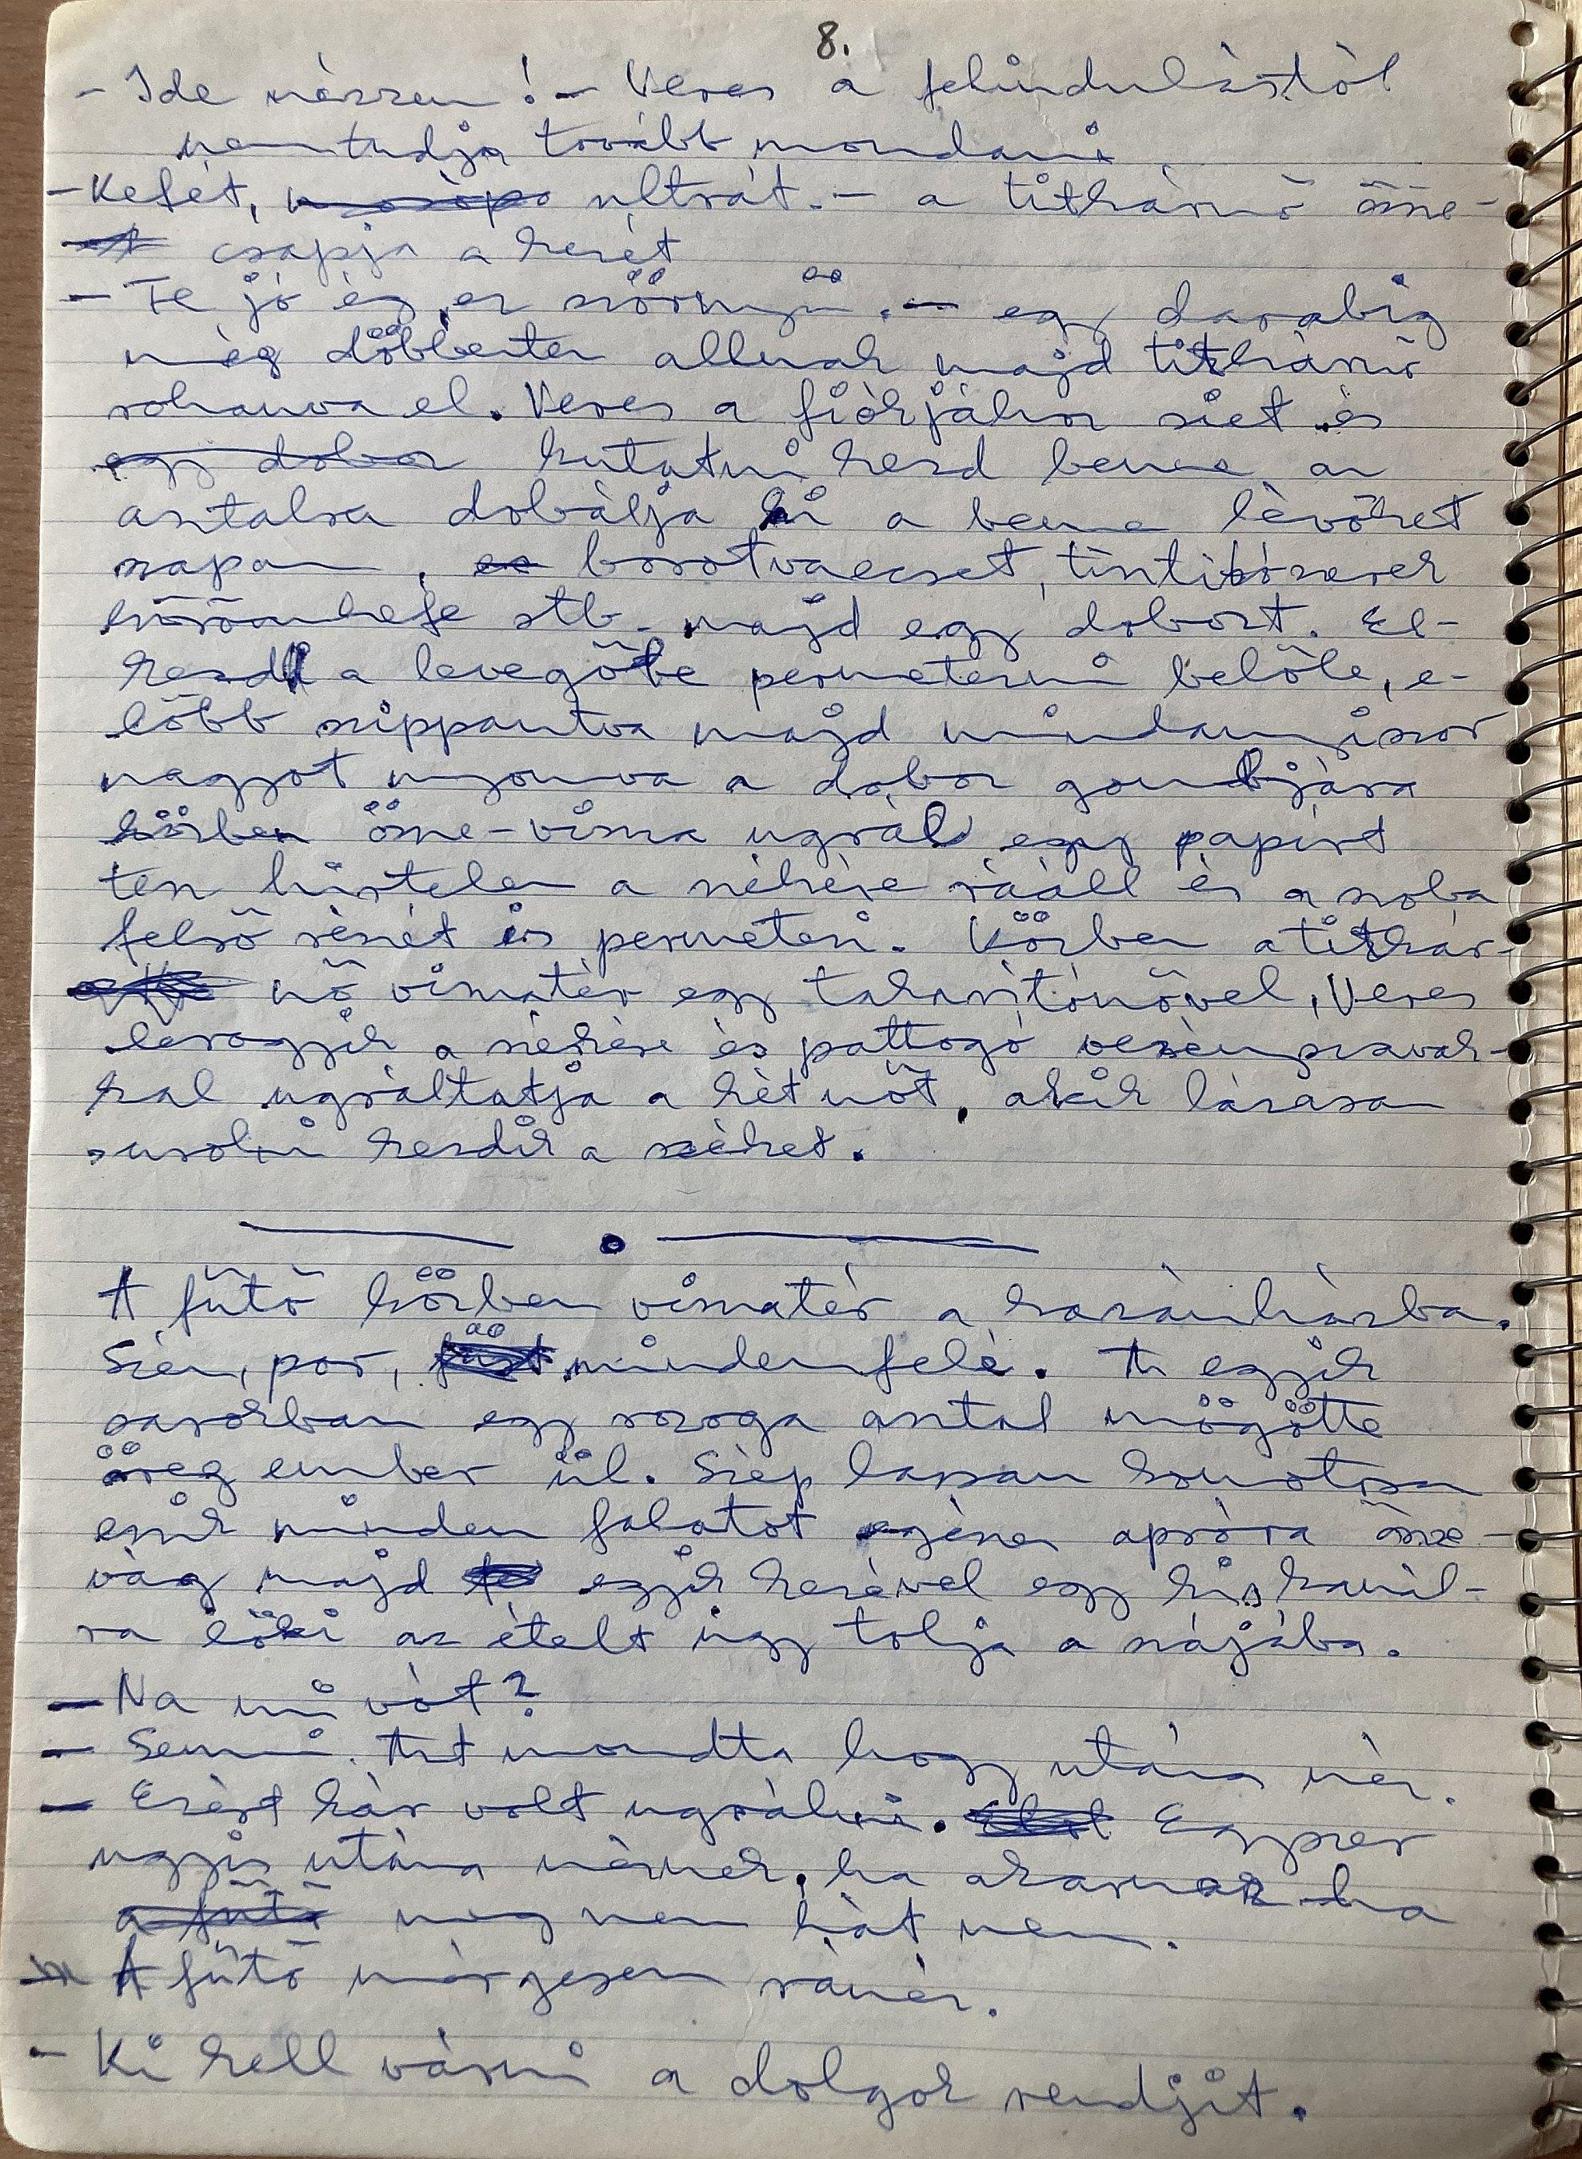 8.
- Ide nézzen! - Veres a felindulástól
nemtudja tovább mondani.
- Kefét, ultrát. - a titkárnő össze-
csapja a kezét
- Te jó ég, ez szörnyű. - egy darabig
még döbbenten állnak majd titkárnő
rohanva el. Veres a fiókjához siet és
egy doboz kutatni kezd benne az
asztalra dobálja ki a benne lévőket
szappan, borotvaecset, tintitószerek
körömkefe stb. majd egy dobozt. El-
kezd a levegőbe permetezni belőle, e-
lőbb szippantva majd mindannyiszor
nagyot nyomva a doboz gombjára
körben össze-vissza ugrál egy papírt
tesz hirtelen a székére rááll és a szoba
felső részét is permetezi. Közben a titkár-
nő visszatér egy takarítónővel, Veres
lerogyik a székére és pattogó vezényszavak-
kal ugráltatja a két nőt, akik lázasan
surolni kezdik a széket.
A fűtő közben visszatér a kazánházba.
Szén, por, mindenfelé. Az egyik
sarokban egy rozoga asztal mögötte
öreg ember ül. Szép lassan komótosan
eszik minden falatot egészen apróra össze-
vág majd egyik kezével egy kis kanál-
ra löki az ételt úgy tolja a szájába.
- Na mi vót?
- Semmi. Azt mondta hogy utána néz.
- Ezért kár volt ugrálni. Egyszer
ugyis utána néznek, ha akarnak ha
a fűtő meg nem hát nem.
A fűtő mérgesen ránéz.
- Ki kell várni a dolgok rendjit.